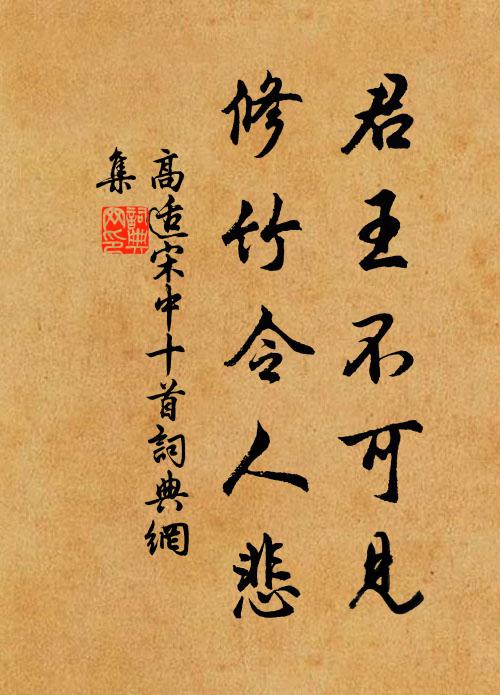 君王不可見
修竹令人悲
高適宋中十首詞典網
集
詞典
网印